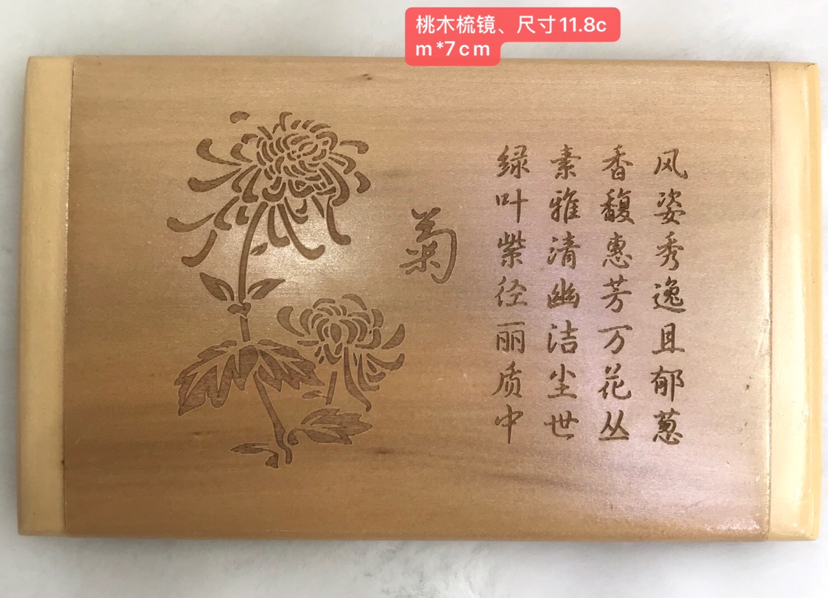 桃木梳镜、尺寸11.8c
m*7cm
风姿秀逸且郁葱
香馥惠芳万花丛
素雅清幽洁尘世
绿叶紫径丽质中
菊